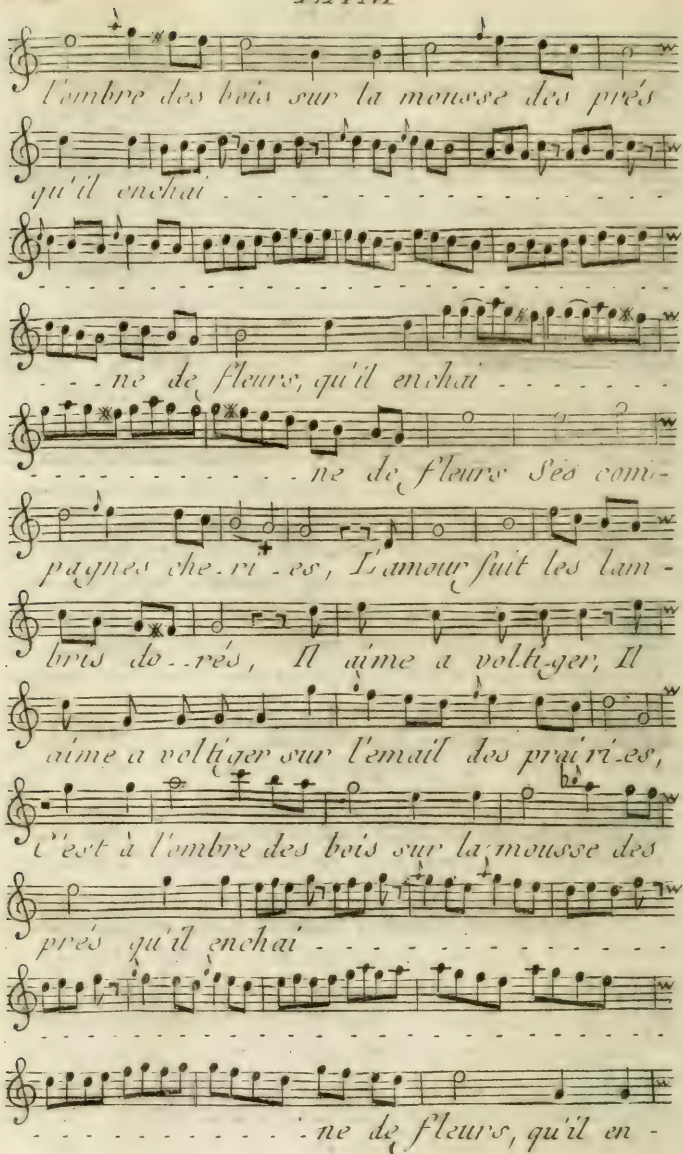 l'ombre des bois sur la mousse des prés
qu'il enchai - - - - - - - - - - - -
- - - - - - - - - - - - - - - -
- - - ne de fleurs, qu'il enchai - - - - - -
- - - - - - - - - - ne de fleurs Ses com-
pagnes che-ri-es, L'amour fuit les lam-
bris do--rés, Il aime a vol-ti-ger, Il
aime a voltiger sur l'email des prai-ri-es,
C'est à l'ombre des bois sur la mousse des
prés qu'il enchai - - - - - - - - - - - -
- - - - - - - - - - - - - - - -
- - - - - - - - - ne de fleurs, qu'il en-